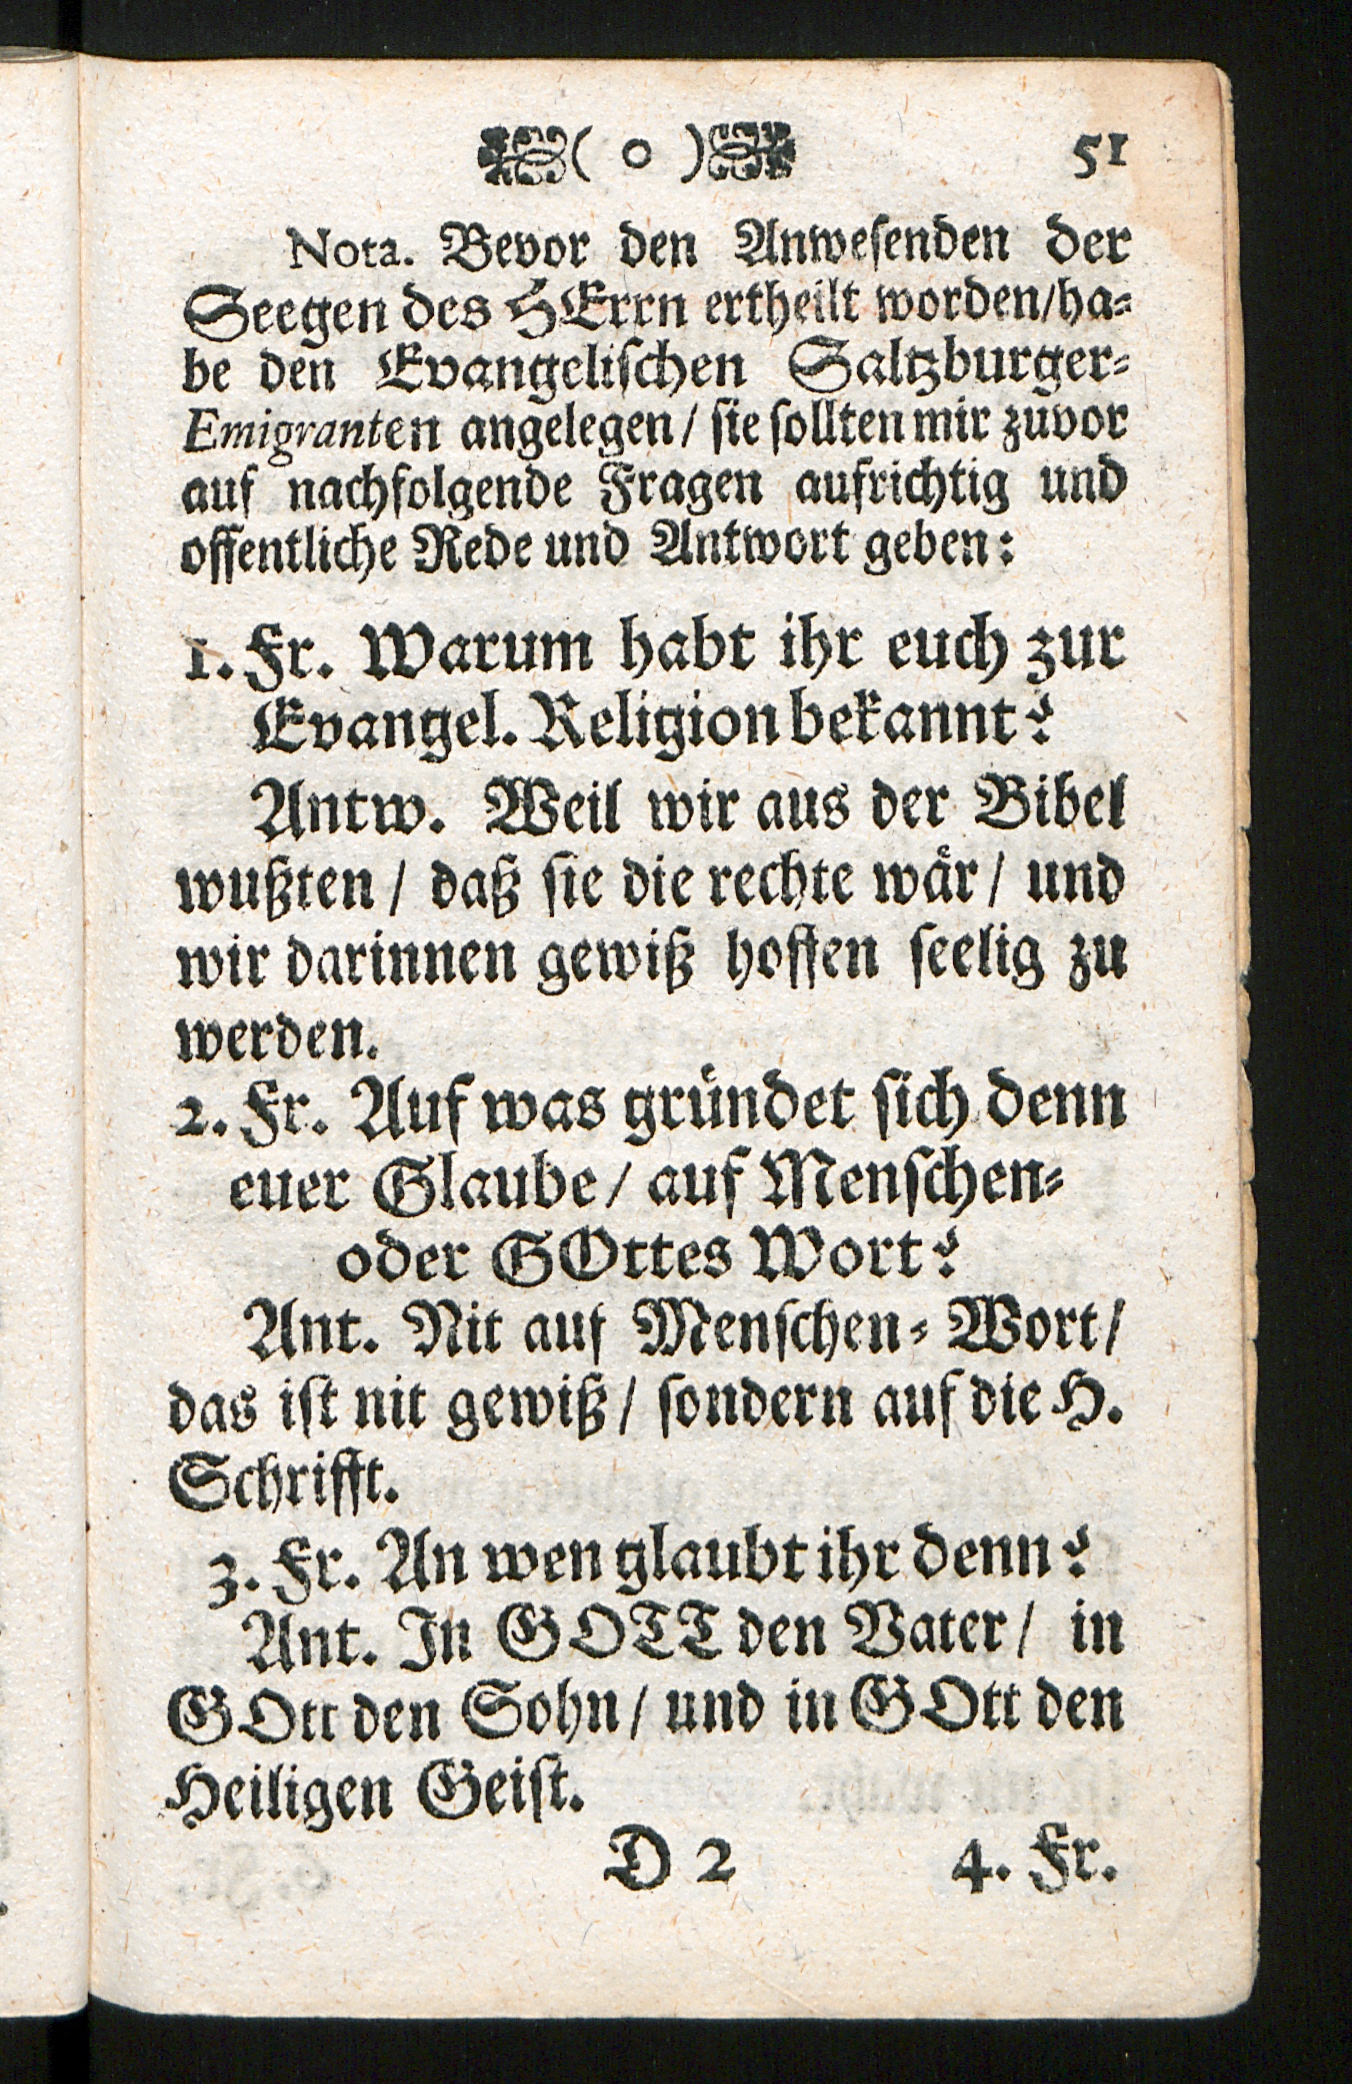 ( o ) 51
Nota. Bevor den Anwesenden der
Seegen des HErrn ertheilt worden/ha-
be den Evangelischen Saltzburger-
Emigranten angelegen/ sie sollten mir zuvor
auf nachfolgende Fragen aufrichtig und
offentliche Rede und Antwort geben:
1. Fr. Warum habt ihr euch zur
Evangel. Religion bekannt?
Antw. Weil wir aus der Bibel
wußten/ daß sie die rechte wår/ und
wir darinnen gewiß hoffen seelig zu
werden.
2. Fr. Auf was gründet sich denn
euer Glaube/ auf Menschen-
oder GOttes Wort?
Ant. Nit auf Menschen-Wort/
das ist nit gewiß/ sondern auf die H.
Schrifft.
3. Fr. An wen glaubt ihr denn?
Ant. In GOTT den Vater/ in
GOtt den Sohn/ und in GOtt den
Heiligen Geist.
D 2 4. Fr.